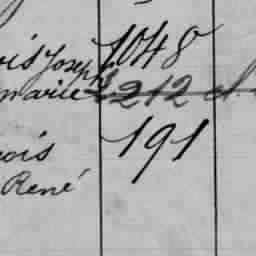 ois Joseph 1048
marie 2212
çois 191
René